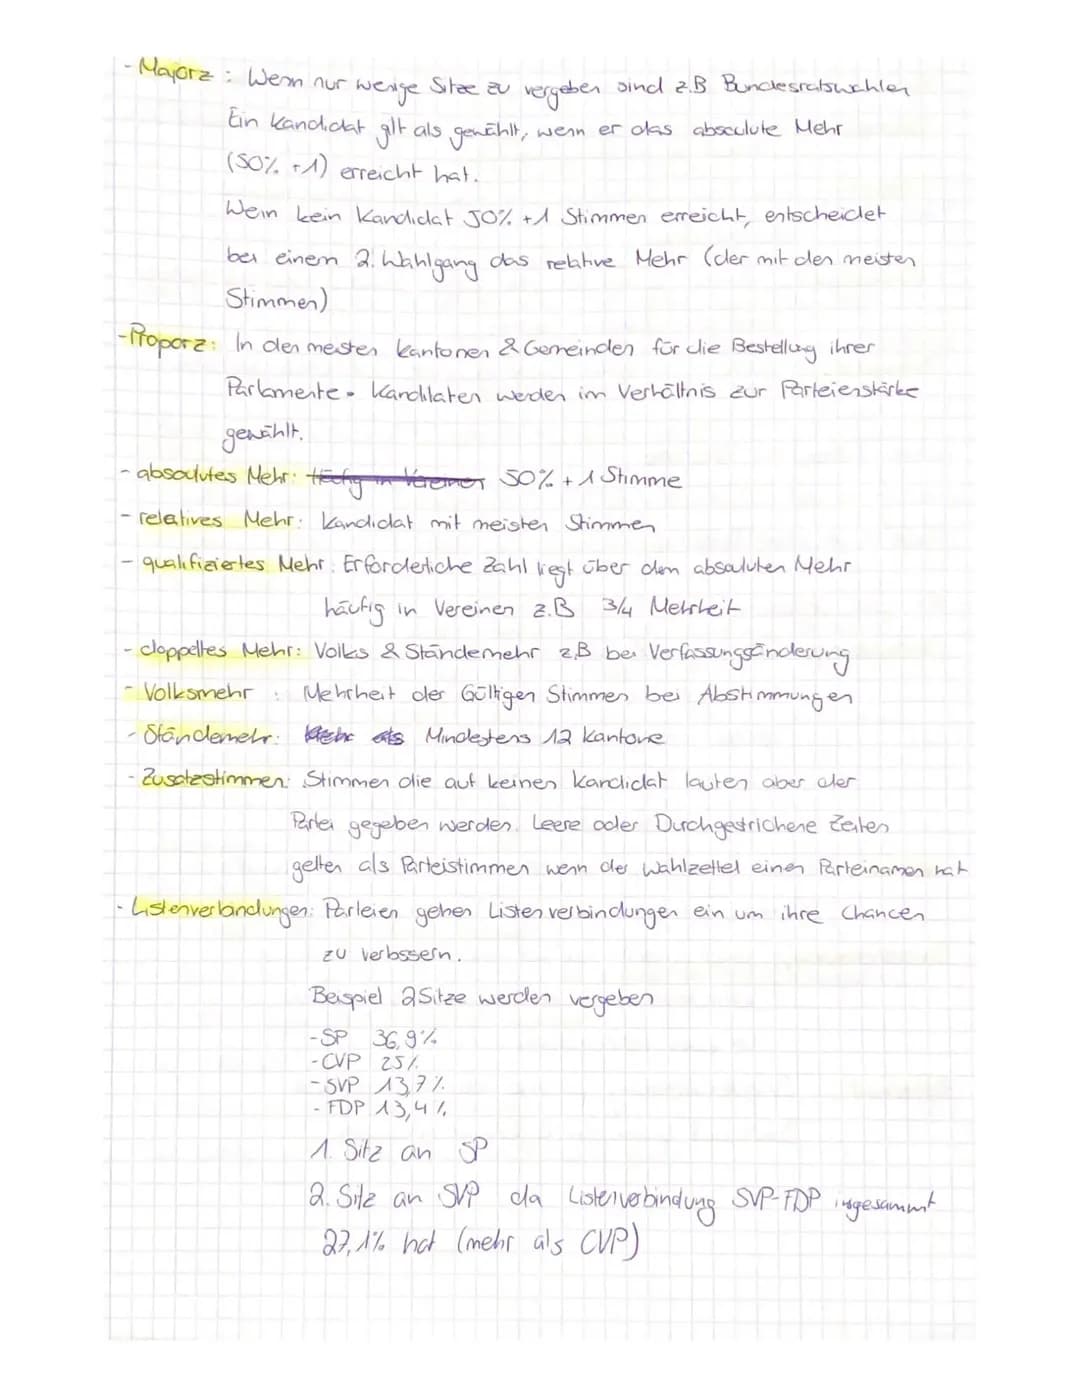 - Majorz : Wenn nur wenige Sitze zu vergeben sind z.B Bundesratswahlen
Ein Kandidat gilt als gewählt, wenn er das absolute Mehr
(50% +1) erreicht hat.
Wenn kein Kandidat 50% +1 Stimmen erreicht, entscheidet
bei einem 2. Wahlgang das relative Mehr (der mit den meisten
Stimmen)
- Proporz: In den meisten Kantonen & Gemeinden für die Bestellung ihrer
Parlamente. Kandidaten werden im Verhältnis zur Parteienstärke
gewählt.
- absolutes Mehr: Häufig in Vereinen 50% + 1 Stimme
- relatives Mehr: Kandidat mit meisten Stimmen
- qualifiziertes Mehr: Erforderliche Zahl liegt über dem absoluten Mehr
häufig in Vereinen z.B 3/4 Mehrheit
- doppeltes Mehr: Volks & Ständemehr z.B bei Verfassungsänderung
- Volksmehr : Mehrheit der Gültigen Stimmen bei Abstimmungen
- Ständemehr: Mehr als Mindestens 12 Kantone
- Zusatzstimmen: Stimmen die auf keinen Kandidat lauten aber der
Partei gegeben werden. Leere oder Durchgestrichene Zeilen
gelten als Parteistimmen wenn der Wahlzettel einen Parteinamen hat
- Listenverbindungen: Parteien gehen Listenverbindungen ein um ihre Chancen
zu verbssern.
Beispiel 2 Sitze werden vergeben
- SP 36,9%
- CVP 25%
- SVP 13,7%
- FDP 13,4%
1. Sitz an SP
2. Sitz an SVP da Listenverbindung SVP-FDP insgesammt
27,1% hat (mehr als CVP)